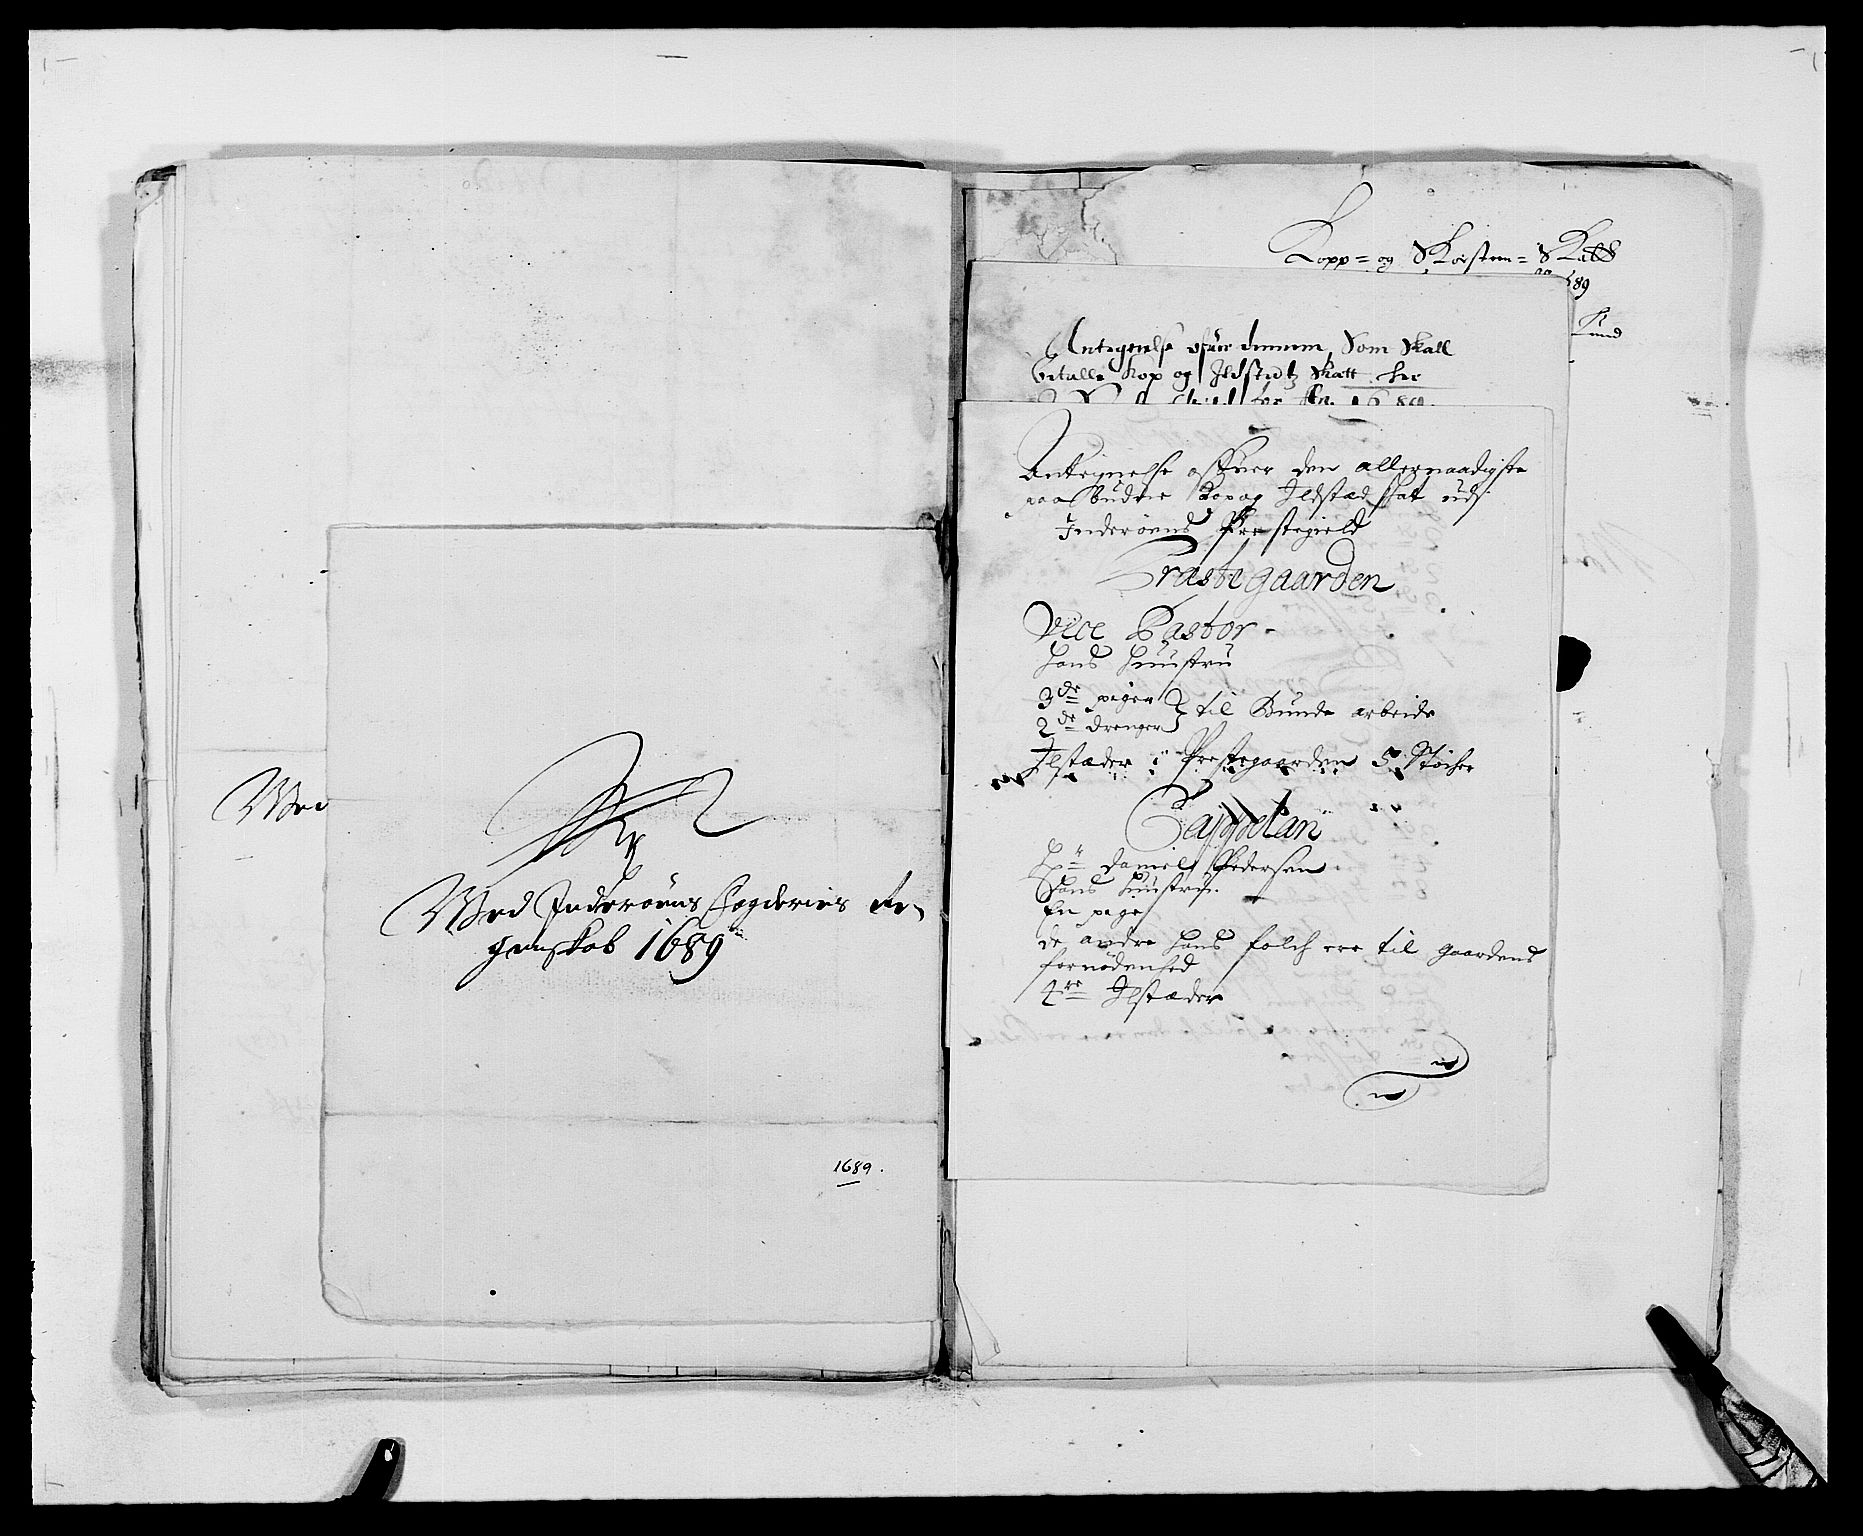 Med
Med Inderøens Fogderies Re-
genskob 1689
1689.
Kopp= og Skorsten= Skatt
89
Antegnelse ofuer dennem, Som Skall
betalle Kop og Ildstedtz Skatt
for An. 1689.
Anteignelse offuer den allernaadigste
paabudne Kop og Ildstæd skat udj
Inderøens Præstegield
Præstegaarden
Vice Pastor
hans hustru
3de piger
2de drenger } til Bunde arbeide
Ilstæder i Præstegaarden 5 Støcher
Cappelan
Hr Daniel Pedersen
hans hustru
En pige
de andre hans folch ere til gaardens
fornødenhed
4re Ilstæder